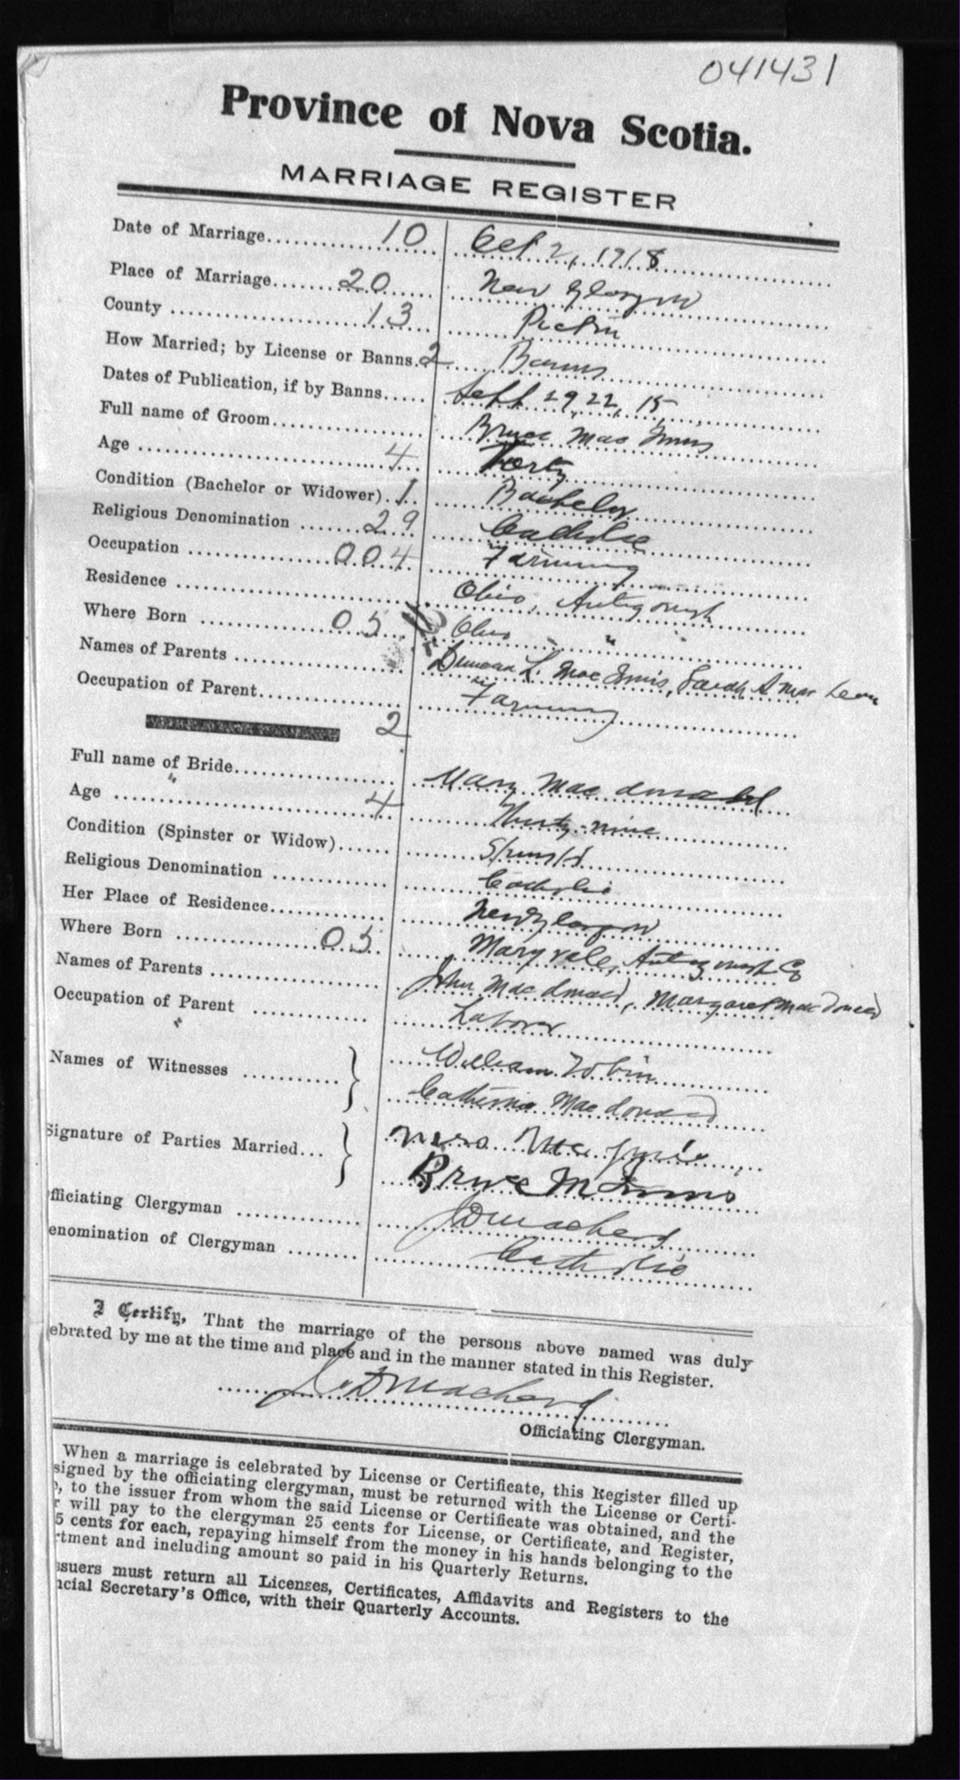 041431
Province of Nova Scotia.
MARRIAGE REGISTER
Date of Marriage 10 Oct 2, 1918
Place of Marriage 20 New Glasgow
County 13 Pictou
How Married; by License or Banns. 2 Banns
Dates of Publication, if by Banns Sept 29, 22, 15
Full name of Groom Bruce Mac Innis
Age 4 Forty
Condition (Bachelor or Widower) 1 Bachelor
Religious Denomination 29 Catholic
Occupation 004 Farming
Residence Ohio, Antigonish
Where Born 05 Ohio " "
Names of Parents Duncan L. Mac Innis, Sarah A Mac Lean
Occupation of Parent Farming
2
Full name of Bride Mary Mac donald
Age 4 Thirty-nine
Condition (Spinster or Widow) Spinster
Religious Denomination Catholic
Her Place of Residence New Glasgow
Where Born 05 Maryvale, Antigonish Co
Names of Parents John Mac donald, Margaret Mac Donald
Occupation of Parent Labour
Names of Witnesses } William Tobin
Catherine Mac donald
Signature of Parties Married }
Bruce McInnis
fficiating Clergyman
enomination of Clergyman Catholic
I Certify, That the marriage of the persons above named was duly
ebrated by me at the time and place and in the manner stated in this Register.
Officiating Clergyman.
When a marriage is celebrated by License or Certificate, this Register filled up
signed by the officiating clergyman, must be returned with the License or Certi-
, to the issuer from whom the said License or Certificate was obtained, and the
r will pay to the clergyman 25 cents for License, or Certificate, and Register,
5 cents for each, repaying himself from the money in his hands belonging to the
rtment and including amount so paid in his Quarterly Returns.
ssuers must return all Licenses, Certificates, Affidavits and Registers to the
ncial Secretary's Office, with their Quarterly Accounts.